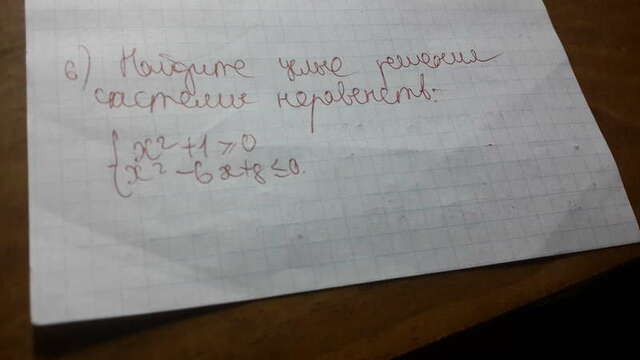 6) Найдите целые решения
системы неравенств:
{ x² + 1 > 0
x² - 6x + 8 ≤ 0.